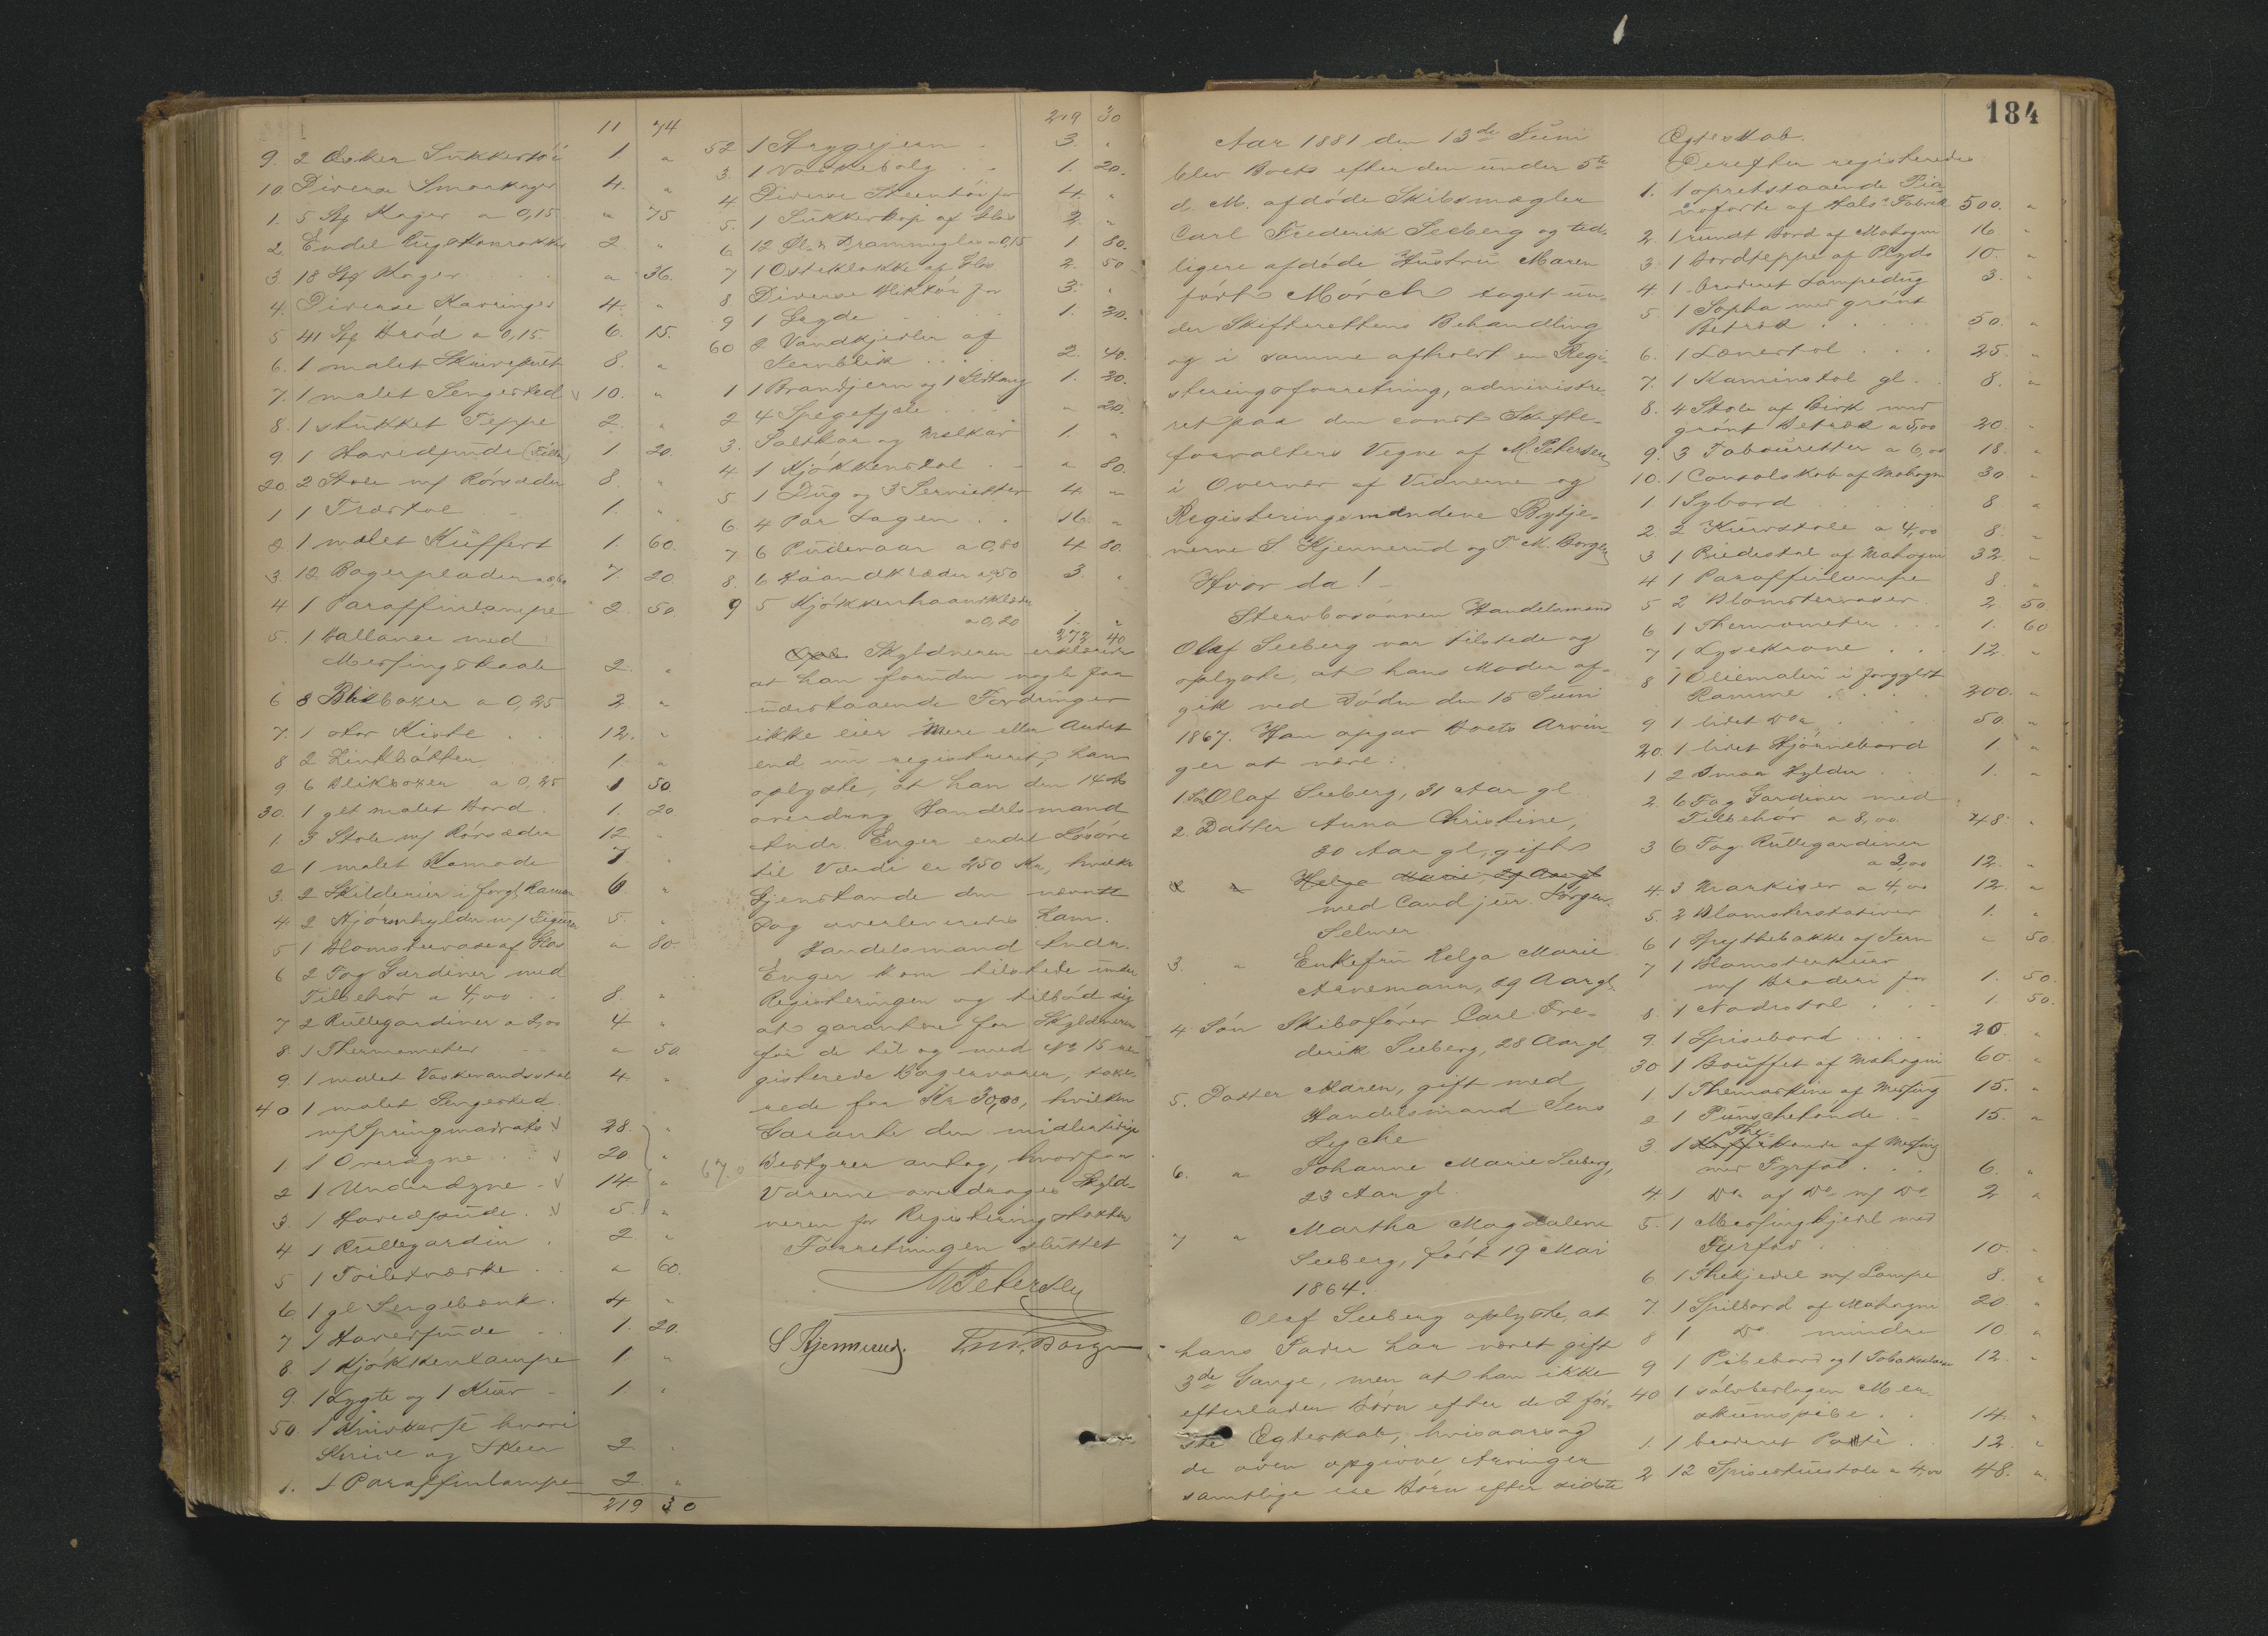 11 74
9. 2 Æsker Sukkertöi 1. "
10. Diverse Smaakager 4. "
1. 5 Stk Kager a 0,15 " 75
2. Endel Rugekonrokke 2. "
3. 18 Stk Kager " 36.
4. Diverse Kavringer 4. "
5 41 Stk Bröd a 0,15. 6. 15.
6. 1 malet Skrivepult 8. "
7. 1 malet Sengested 10. "
8. 1 stukket Teppe 2. "
9. 1 Hovedpude 1. 20.
20. 2 Stole m/ Rörsæder 8. "
1 1 Træstol 1. "
2. 1 malet Kuffert 1. 60.
3. 12 Bagerplader a 0,60 7. 20.
4 1 Paraffinlampe 2. 50.
5. 1 Ballance med
Messingskaale 2. "
6 8 Blikboxer a 0,25 2 "
7. 1 stor Kiste 12. "
8 2 Zinkbötter 1. "
9 6 Blikboxer a 0,25 1 50.
30. 1 glt malet Bord 1. 20
1. 3 Stole m/ Rörsæder 12 "
2 1 malet Komode 7. "
3. 2 Skilderier i forgl. Ramme 6 "
4 2 Hjörnehylder m/ Figurer 5. "
5 1 Blomstervase af Glas " 80.
6 2 Fag Gardiner med
Tilbehör a 4,00 8. "
7 2 Rullegardiner a 2,00 4 "
8. 1 Thermometer " 50.
9. 1 malet Vaskevandsstol 4. "
40 1 malet Sengested
m/ Springmadrats 28. "
1. 1 Overdyne 20 "
2 1 Underdyne 14 "
3. 1 Hovedpude 5. "
4 1 Rullegardin 2 "
5 1 Toiletværke " 60.
6 1 gl Sengebænk 4 "
7 1 Hovedpude 1. 20.
8. 1 Kjökkenlampe 1 "
9. 1 Lygte og 1 Kurv 1 "
50. 1 Knivkasse hvori
Knive og Skeer 2 "
1. 1 Paraffinlampe 2 "
219 30
219 30
52 1 Strygejern 3. "
3. 1 Vaskebalg 1. 20.
4 Diverse Steentöi for 4. "
5. 1 Sukkerkop af Glas 2. "
6 12 Öl- & Drammeglas a 0,15 1. 80.
7 1 Osteklokke af Glas 2. 50
8 Diverse Bliktöi for 3. "
9 1 Gryde 1. 20.
60 2 Vandkjedler af
Jernblik 2. 40.
1 1 Brandjern og 1 Ildtang 1. 20.
2 4 Spegefjæle " 20.
3. Saltkar og Melkar 1. "
4 1 Kjökkenstol " 80.
5 1 Dug og 3 Servietter 4 "
6. 4 Par Lagen 16. "
7 6 Pudevaar a 0,80 4 80.
8. 6 Haandklæder a 0,50 3. "
9 5 Kjökkenhaandklæder
a 0,20 1. "
272 40
Skyldneren erklærede
at han foruden nogle faa
udestaaende Fordringer
ikke eier mere eller Andet
end nu registreret, han
oplyste, at han den 14de
overdrog Handelsmand
Andr. Enger endel Lösöre
til Værdi ca 250 Kr, hvilke
Gjenstande den nævnte
Dag overleveredes ham.
Handelsmand Andr.
Enger kom tilstede under
Registeringen og tilböd sig
at garantere for Skyldneren
for de til og med No 15 re-
gisterede Bagervarer, takse-
rede for Kr 30,00, hvilken
Garanti den midlertidige
Bestyrer antog, hvorfor
Varerne overdroges Skyld-
neren for Registeringstaxten
Forretningen sluttet
M Petersen
S Kjennerud. T. M. Borge
184
Aar 1881 den 13de Juni
blev Boets efter den under 5te
d. M. afdöde Skibsmægler
Carl Frederik Seeberg og tid-
ligere afdöde Hustru Maren
födt Mörch taget un-
der Skifterettens Behandling
og i samme afholdt en Regi-
steringsforretning, administre-
ret paa den const. Skifte-
forvalters Vegne af M. Petersen
i Overvær af Vidnerne og
Registeringsmændene Bytje-
nerne S Kjennerud og T. M. Borge
Hvor da! -
Stervbosönnen Handelsmand
Olaf Seeberg var tilstede og
oplyste, at hans Moder af-
gik ved Döden den 15 Juni
1867. Han opgav Boets Arvin-
ger at være:
1. Sön Olaf Seeberg, 31 Aar gl
2. Datter Anna Christine,
30 Aar gl, gift
Helga Marie, 29 Aar gl
med Cand. jur. Jörgen
Selmer
3. " Enkefru Helga Marie
Arnemann, 29 Aar gl.
4 Sön Skibsförer Carl Fre-
derik Seeberg, 28 Aar gl
5. Datter Maren, gift med
Handelsmand Jens
Lyche
6. " Johanne Marie Seeberg,
23 Aar gl.
7 " Martha Magdalene
Seeberg, födt 19 Mai
1864.
Olaf Seeberg oplyste, at
hans Fader har været gift
3de Gange, men at han ikke
efterlader Börn efter de 2 för-
ste Egteskab, hvisaarsag
de oven opgivne Arvinger
samtlige ere Börn efter sidste
Egteskab.
Derefter registeredes
1. 1 opretstaaende Pia-
noforte af Hals's Fabrik 500. "
2. 1 rundt Bord af Mahogni 16 "
3. 1 Bordteppe af Plyds 10. "
4. 1 broderet Lampedug 3. "
5 1 Sopha med grönt
Betræk 50. "
6. 1 Lænestol 25. "
7. 1 Kaminstol gl. 8. "
8. 4 Stole af Birk med
grönt Betræk a 5,00 20. "
9. 3 Tabouretter a 6,00 18. "
10. 1 Consolskab af Mahogni 30 "
1 1 Sybord 8 "
2. 2 Kurvstole a 4,00 8. "
3 1 Piedestal af Mahogni 32. "
4 1 Paraffinlampe 8. "
5 2 Blomstervaser 2 50.
6 1 Thermometer 1. 60
7 1 Lysekrone 12. "
8 1 Oliemaleri i forgyldt
Ramme 200. "
9 1 lidet Do 50. "
20. 1 lidet Hjörnebord 1 "
1 2 Smaa Hylder 1. "
2. 6 Fag Gardiner med
Tilbehör a 8,00 48. "
3 6 Fag Rullegardiner
a 2,00 12. "
4. 3 Markiser a 4,00 12. "
5. 2 Blomsterstativer 1. "
6 1 Spyttebakke af Jern " 50
7 1 Blomsterkurv
m/ Broderi for 1. 50.
8. 1 Nodestol 1. 50.
9. 1 Spisebord 20. "
30 1 Bouffet af Mahogni 60. "
1 1 Themaskine af Messing 15. "
2 1 Punschekande 15. "
3 1 The-kande af Messing
med Fyrfad 6. "
4 1 Do af Do m/ Do 2 "
5. 1 Messingkjedel med
Fyrfad 10. "
6 1 Thekjedel m/ Lampe 8. "
7. 1 Spilbord af Mahogni 20. "
8 1 Do mindre 10. "
9 1 Pibebord og 1 12. "
40 1 sölvbeslagen Mer-
skumspibe 14. "
1. 1 broderet 12. "
2 12 Spisestuestole a 4,00 48. "